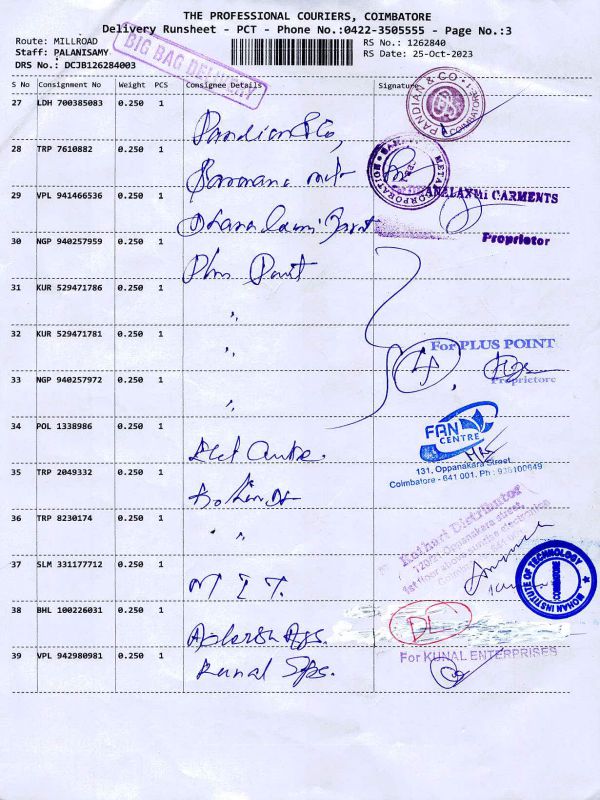 THE PROFESSIONAL COURIERS, COIMBATORE
Delivery Runsheet - PCT - Phone No.:0422-3505555 - Page No.:3
Route: MILLROAD
RS No.: 1262840
Staff: PALANISAMY
RS Date: 25-Oct-2023
DRS No.: DCJB126284003
BIG BAG DELIVERY
S No Consignment No Weight PCS Consignee Details Signature
27 LDH 700385083 0.250 1 Pandian & Co,
PANDIAN & CO. COIMBATORE
28 TRP 7610882 0.250 1
CORPORATION
29 VPL 941466536 0.250 1
GARMENTS
Proprietor
30 NGP 940257959 0.250 1
31 KUR 529471786 0.250 1 "
32 KUR 529471781 0.250 1 "
For PLUS POINT
Proprietors
33 NGP 940257972 0.250 1 "
34 POL 1338986 0.250 1
FAN CENTRE
131, Oppanakara Street,
Coimbatore - 641 001.
35 TRP 2049332 0.250 1
36 TRP 8230174 0.250 1 "
Distributor
Oppanakara street,
1st floor above
37 SLM 331177712 0.250 1 M I T.
MOHAN INSTITUTE OF TECHNOLOGY
38 BHL 100226031 0.250 1
DL
39 VPL 942980981 0.250 1 Kunal
For KUNAL ENTERPRISES